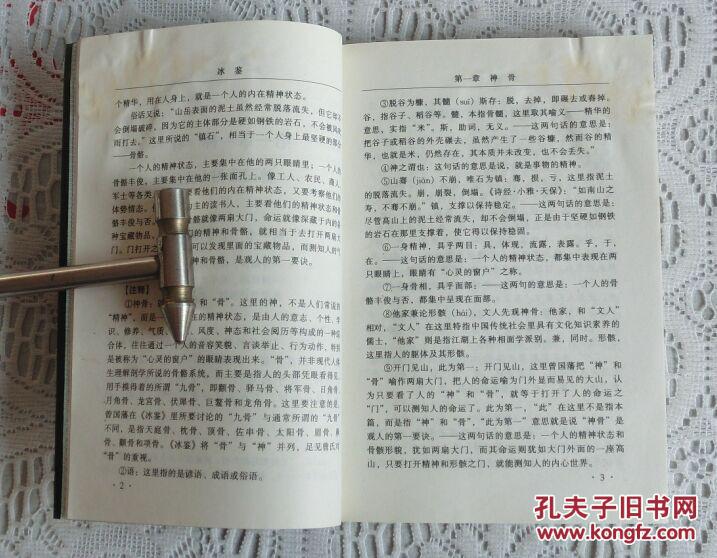 冰鉴
个精华，用在人身上，就是一个人的内在精神状态。
俗话又说："山岳表面的泥土虽然经常脱落流失，但它却不
会倒塌破碎，因为它的主体部分是硬如钢铁的岩石，不会被风吹
雨打去。"这里所说的"镇石"，相当于一个人身上最坚硬的部分
——骨骼。
一个人的精神状态，主要集中在他的两只眼睛里；一个人的
骨骼丰俊，主要集中在他的一张面孔上。像工人、农民、商人、
军士等各类人
们的内在精神状态，又要考察他们的
体势情态。
为主的读书人，主要看他们的精神状态和
骨骼丰俊与否。
骨骼就像两扇大门，命运就像深藏于内的各
种宝藏物品，
的精神和骨骼，就相当于去打开两扇
大门。门打开之
可以发现里面的宝藏物品，而测知人的气
是观人的第一要诀。
【注释】
①神骨：就
和"骨"。这里的神，不是人们常说的
"精神"，而是一
是由人的意志、个性、学
识、修养、气质、
风度、神态和社会阅历等构成的一种综
合体，往往通过一个人的音容笑貌、言谈举止、行为动作，特别
是被称为"心灵的窗户"的眼睛表现出来。"骨"，并非现代人体
生理解剖学所说的骨骼系统，而主要是指人的头部凭眼看得见、
用手摸得着的所谓"九骨"，即颧骨、驿马骨、将军骨、日角骨、
月角骨、龙宫骨、伏犀骨、巨鳌骨和龙角骨。这里要注意的是，
曾国藩在《冰鉴》里所要讨论的"九骨"与通常所谓的"九骨"
不同，是指天庭骨、枕骨、顶骨、佐串骨、太阳骨、眉骨、鼻
骨、颧骨和项骨。《冰鉴》将"骨"与"神"并列，足见曾氏对
"骨"的重视。
②语：这里指的是谚语、成语或俗语。
·2·
第一章 神骨
③脱谷为糠，其髓（suǐ）斯存：脱，去掉，即碾去或舂掉。
谷，指谷子、稻谷等。髓，本指骨髓，这里取其喻义——精华的
意思，实指"米"。斯，助词，无义。——这两句话的意思是：
把谷子或稻谷的外壳碾去，虽然产生了一些谷糠，然而谷的精
华，也就是米，仍然存在，其本质并未改变，也不会丢失。"
④神之谓也：这句话的意思是说，就是事物的精神。
⑤山骞（jiān）不崩，唯石为镇：骞，损，亏，这里指泥土
的脱落流失。崩，崩裂，倒塌。《诗经·小雅·天保》："如南山之
寿，不骞不崩。"镇，支撑以保持稳定。——这两句话的意思是：
尽管高山上的泥土经常流失，却不会倒塌，正是由于坚硬如钢铁
的岩石在那里支撑着，使它得以保持稳固。
⑥一身精神，具乎两目：具，体现，流露，表露。乎，于，
在。——这句话的意思是：一个人的精神状态，都集中表现在两
只眼睛上，眼睛有"心灵的窗户"之称。
⑦一身骨相，具乎面部：——这两句的意思是，一个人的骨
骼丰俊与否，都集中呈现在面部。
⑧他家兼论形骸（hái），文人先观神骨：他家，和"文人"
相对，"文人"在这里特指中国传统社会里具有文化知识素养的
儒士，"他家"则是指江湖上各种相面学派别。兼，同时。形骸，
这里指人的躯体及其形貌
⑨开门见山，此为第一：开门见山，这里曾国藩把"神"和
"骨"喻作两扇大门，把人的命运喻为门外显而易见的大山，认为
只要看了人的"神"和"骨"，就等于打开了人的命运之
"门"，可以测知人的命运了。此为第一，"此"在这里不是指本
篇，而是指"神"和"骨"，"此为第一"意思就是说"神骨"是
观人的第一要诀。——这句话的意思是：一个人的精神状态和
骨骼形貌，犹如两扇大门，而其命运则犹如大门外面的一座高
山，只要打开精神和形骸之门，就能测知人的内心世界。
·3·
孔夫子旧书网
KONGFZ.COM